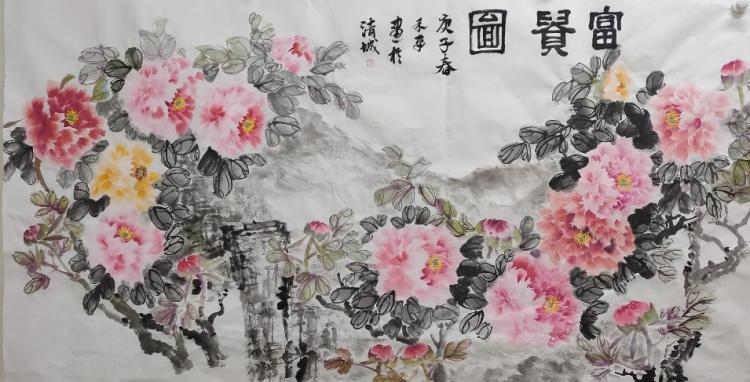 富貴圖
庚子春
禾平
畫於
清城